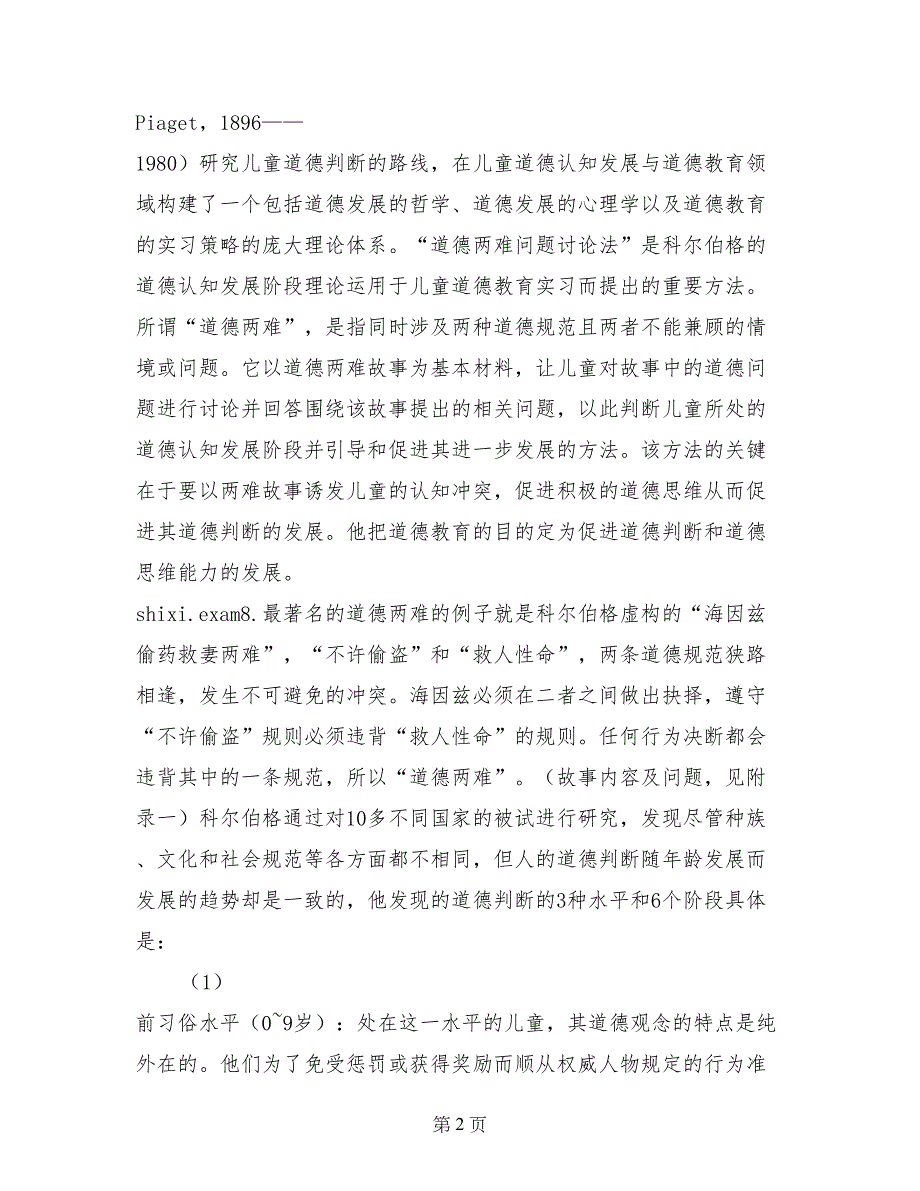 Piaget，1896——
1980）研究儿童道德判断的路线，在儿童道德认知发展与道德教育领
域构建了一个包括道德发展的哲学、道德发展的心理学以及道德教育
的实习策略的庞大理论体系。“道德两难问题讨论法”是科尔伯格的
道德认知发展阶段理论运用于儿童道德教育实习而提出的重要方法。
所谓“道德两难”，是指同时涉及两种道德规范且两者不能兼顾的情
境或问题。它以道德两难故事为基本材料，让儿童对故事中的道德问
题进行讨论并回答围绕该故事提出的相关问题，以此判断儿童所处的
道德认知发展阶段并引导和促进其进一步发展的方法。该方法的关键
在于要以两难故事诱发儿童的认知冲突，促进积极的道德思维从而促
进其道德判断的发展。他把道德教育的目的定为促进道德判断和道德
思维能力的发展。
shixi.exam8.最著名的道德两难的例子就是科尔伯格虚构的“海因兹
偷药救妻两难”，“不许偷盗”和“救人性命”，两条道德规范狭路
相逢，发生不可避免的冲突。海因兹必须在二者之间做出抉择，遵守
“不许偷盗”规则必须违背“救人性命”的规则。任何行为决断都会
违背其中的一条规范，所以“道德两难”。（故事内容及问题，见附
录一）科尔伯格通过对10多不同国家的被试进行研究，发现尽管种族
、文化和社会规范等各方面都不相同，但人的道德判断随年龄发展而
发展的趋势却是一致的，他发现的道德判断的3种水平和6个阶段具体
是：
（1）
前习俗水平（0~9岁）：处在这一水平的儿童，其道德观念的特点是纯
外在的。他们为了免受惩罚或获得奖励而顺从权威人物规定的行为准
第 2 页